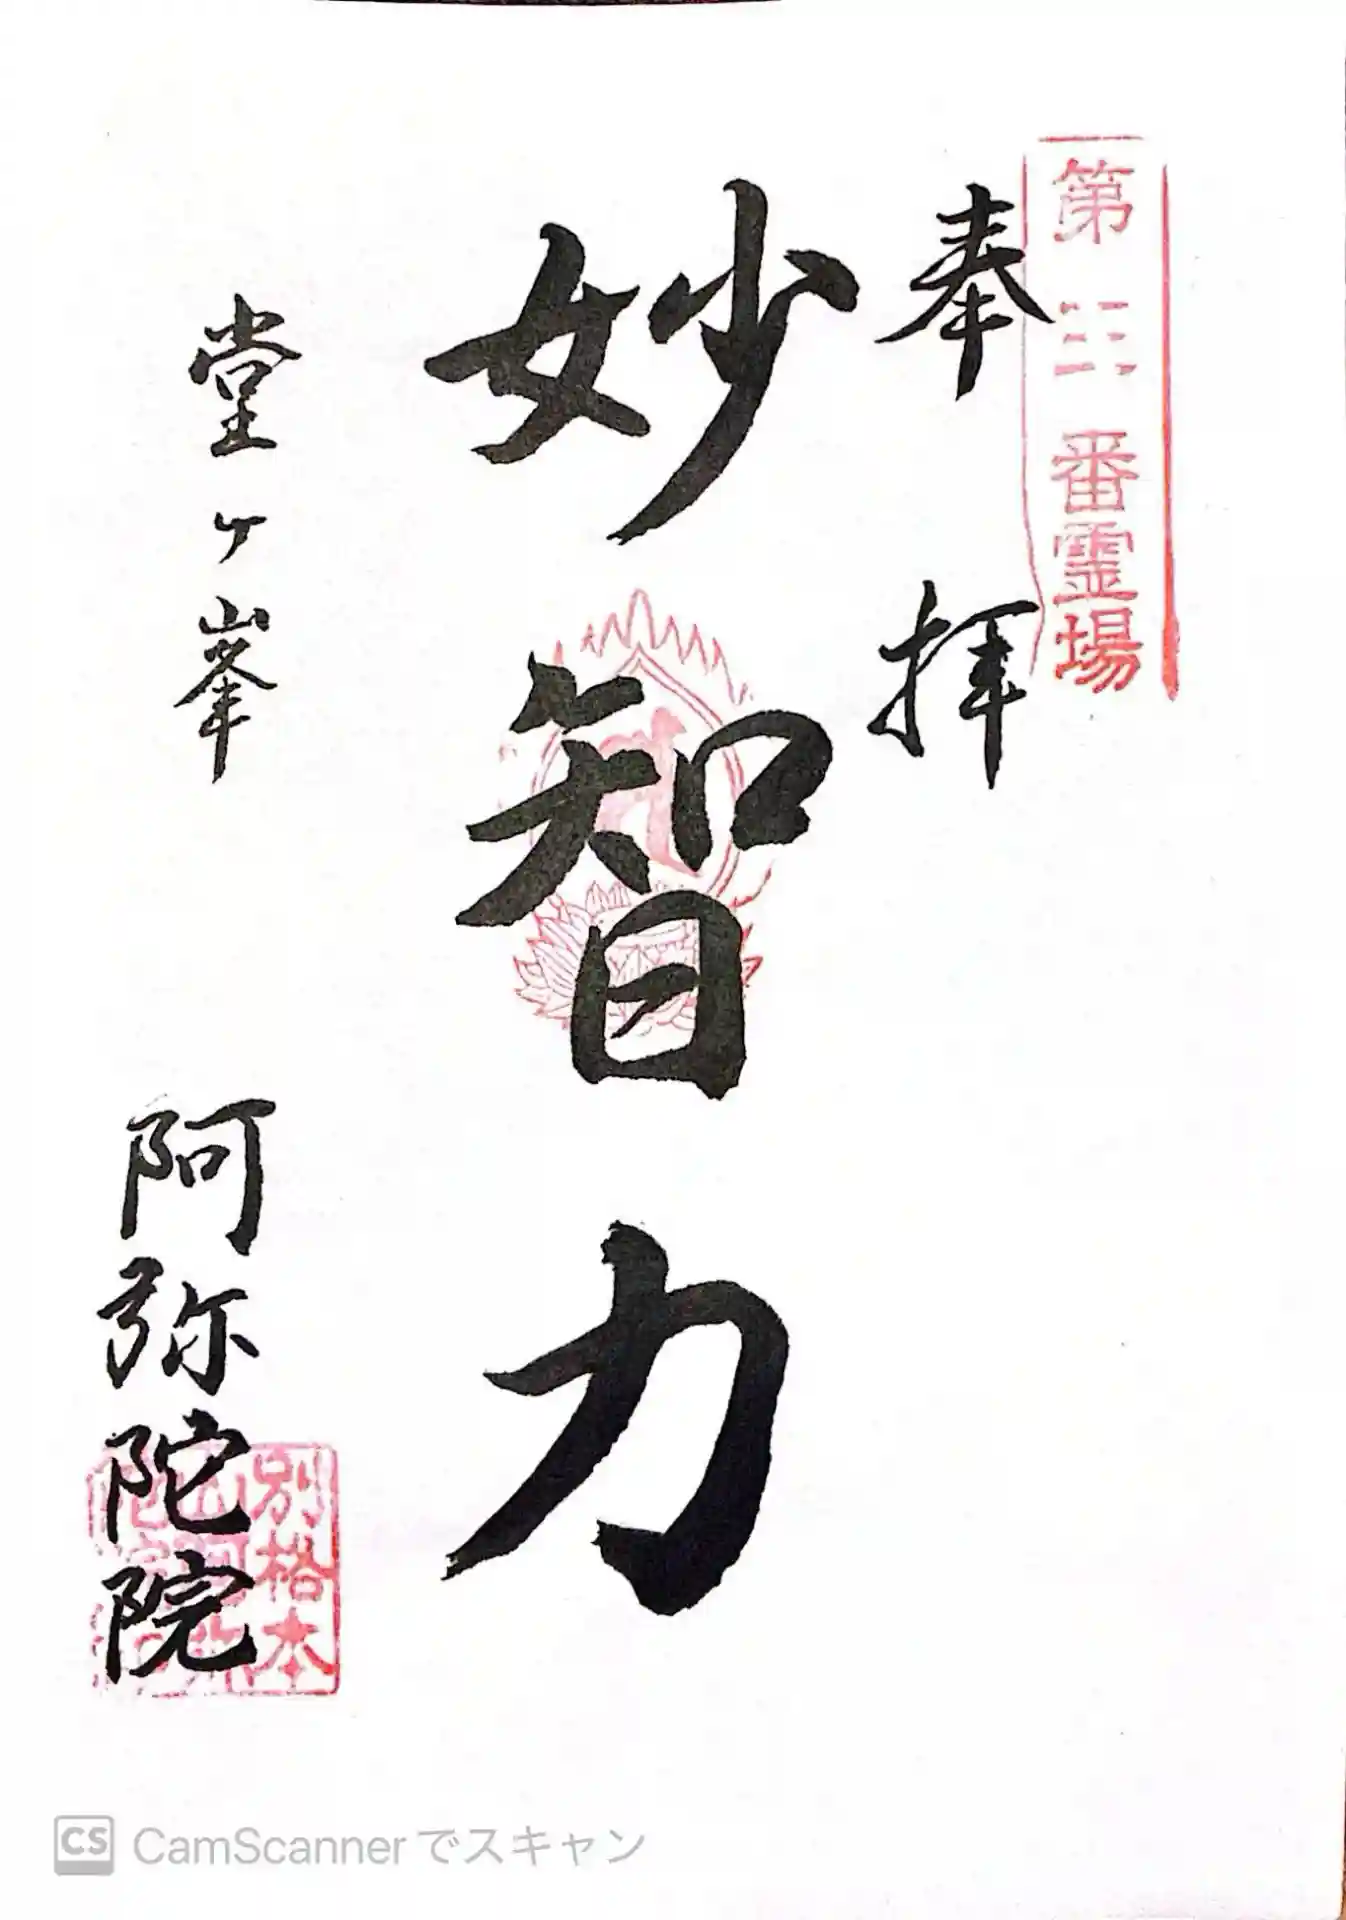 第三番霊場
奉拝
妙智力
堂ヶ峯
阿弥陀院
別格本
山阿弥
陀院印
CS CamScannerでスキャン